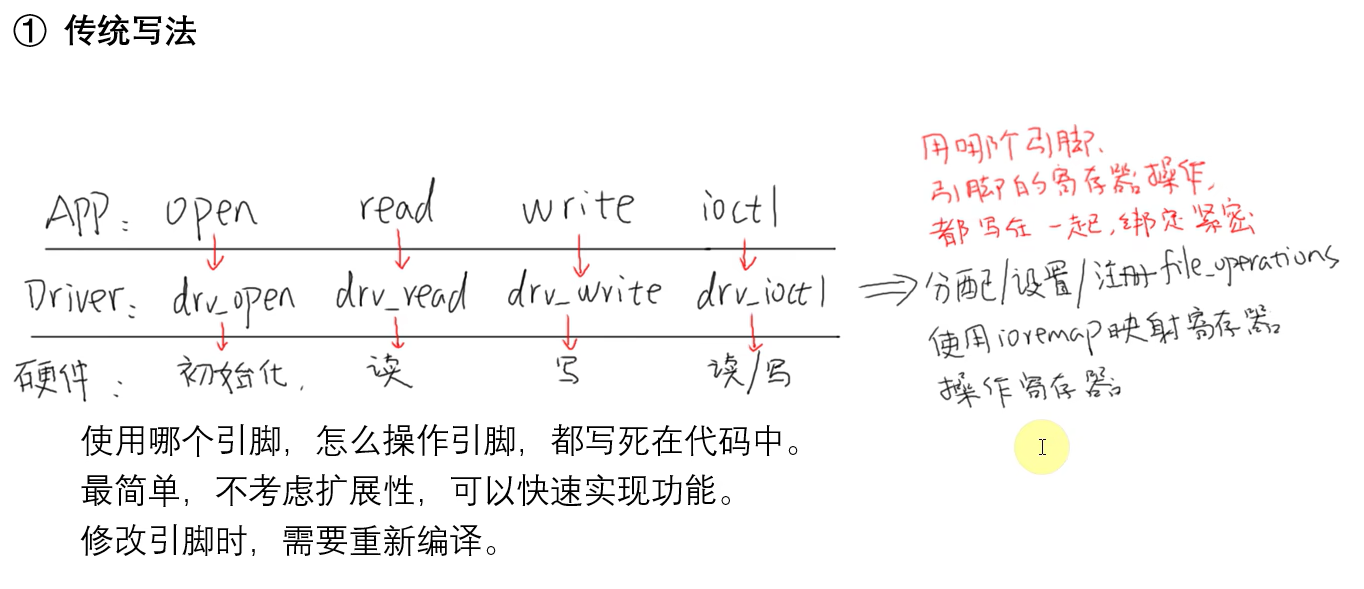 ① 传统写法
用哪个引脚、
引脚的寄存器操作，
都写在一起，绑定紧密
App： open read write ioctl
Driver： drv_open drv_read drv_write drv_ioctl ⇒ 分配/设置/注册file_operations
使用ioremap映射寄存器
操作寄存器
硬件： 初始化， 读 写 读/写
使用哪个引脚，怎么操作引脚，都写死在代码中。
最简单，不考虑扩展性，可以快速实现功能。
修改引脚时，需要重新编译。